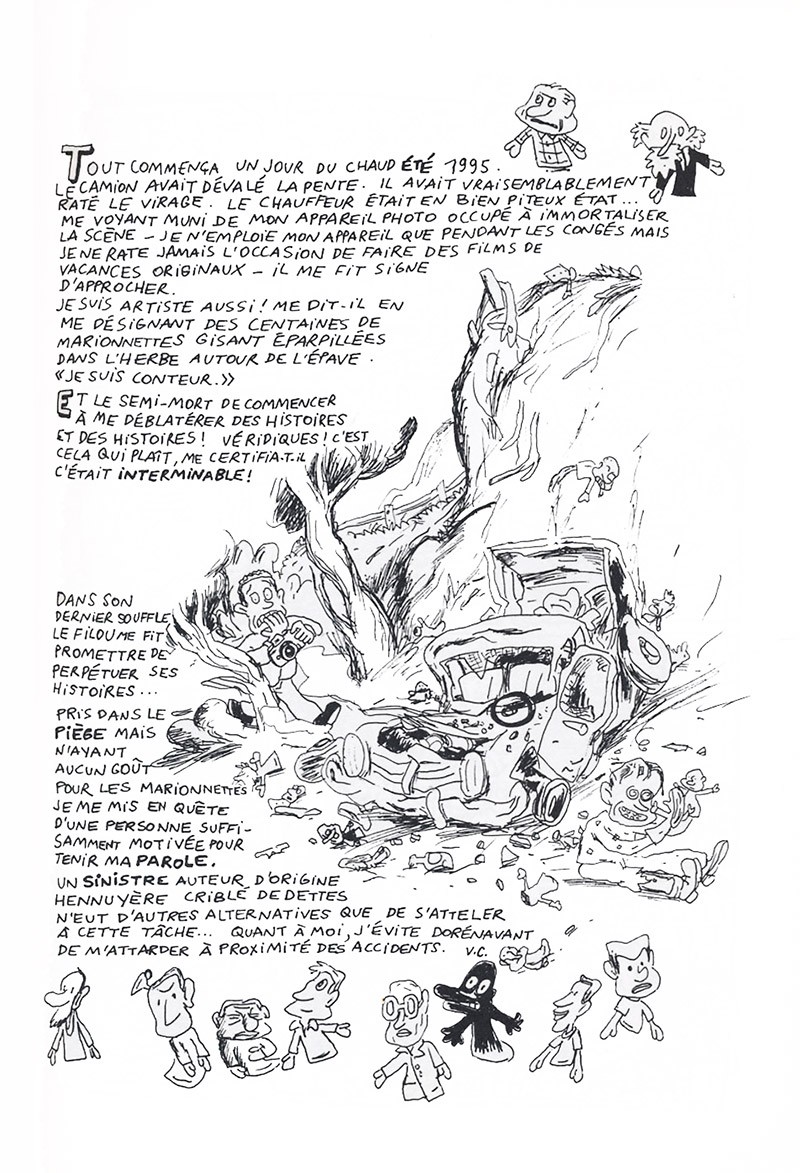 TOUT COMMENÇA UN JOUR DU CHAUD ÉTÉ 1995.
LE CAMION AVAIT DÉVALÉ LA PENTE. IL AVAIT VRAISEMBLABLEMENT
RATÉ LE VIRAGE. LE CHAUFFEUR ÉTAIT EN BIEN PITEUX ÉTAT...
ME VOYANT MUNI DE MON APPAREIL PHOTO OCCUPÉ À IMMORTALISER
LA SCÈNE - JE N'EMPLOIE MON APPAREIL QUE PENDANT LES CONGÉS MAIS
JE NE RATE JAMAIS L'OCCASION DE FAIRE DES FILMS DE
VACANCES ORIGINAUX - IL ME FIT SIGNE
D'APPROCHER.
JE SUIS ARTISTE AUSSI! ME DIT-IL EN
ME DÉSIGNANT DES CENTAINES DE
MARIONNETTES GISANT ÉPARPILLÉES
DANS L'HERBE AUTOUR DE L'ÉPAVE.
«JE SUIS CONTEUR.»
ET LE SEMI-MORT DE COMMENCER
À ME DÉBLATÉRER DES HISTOIRES
ET DES HISTOIRES! VÉRIDIQUES! C'EST
CELA QUI PLAÎT, ME CERTIFIA-T.IL
C'ÉTAIT INTERMINABLE!
DANS SON
DERNIER SOUFFLE
LE FILOU ME FIT
PROMETTRE DE
PERPÉTUER SES
HISTOIRES...
PRIS DANS LE
PIÈGE MAIS
N'AYANT
AUCUN GOÛT
POUR LES MARIONNETTES
JE ME MIS EN QUÊTE
D'UNE PERSONNE SUFFI-
SAMMENT MOTIVÉE POUR
TENIR MA PAROLE.
UN SINISTRE AUTEUR D'ORIGINE
HENNUYÈRE CRIBLÉ DE DETTES
N'EUT D'AUTRES ALTERNATIVES QUE DE S'ATTELER
À CETTE TÂCHE... QUANT À MOI, J'ÉVITE DORÉNAVANT
DE M'ATTARDER À PROXIMITÉ DES ACCIDENTS. V.C.